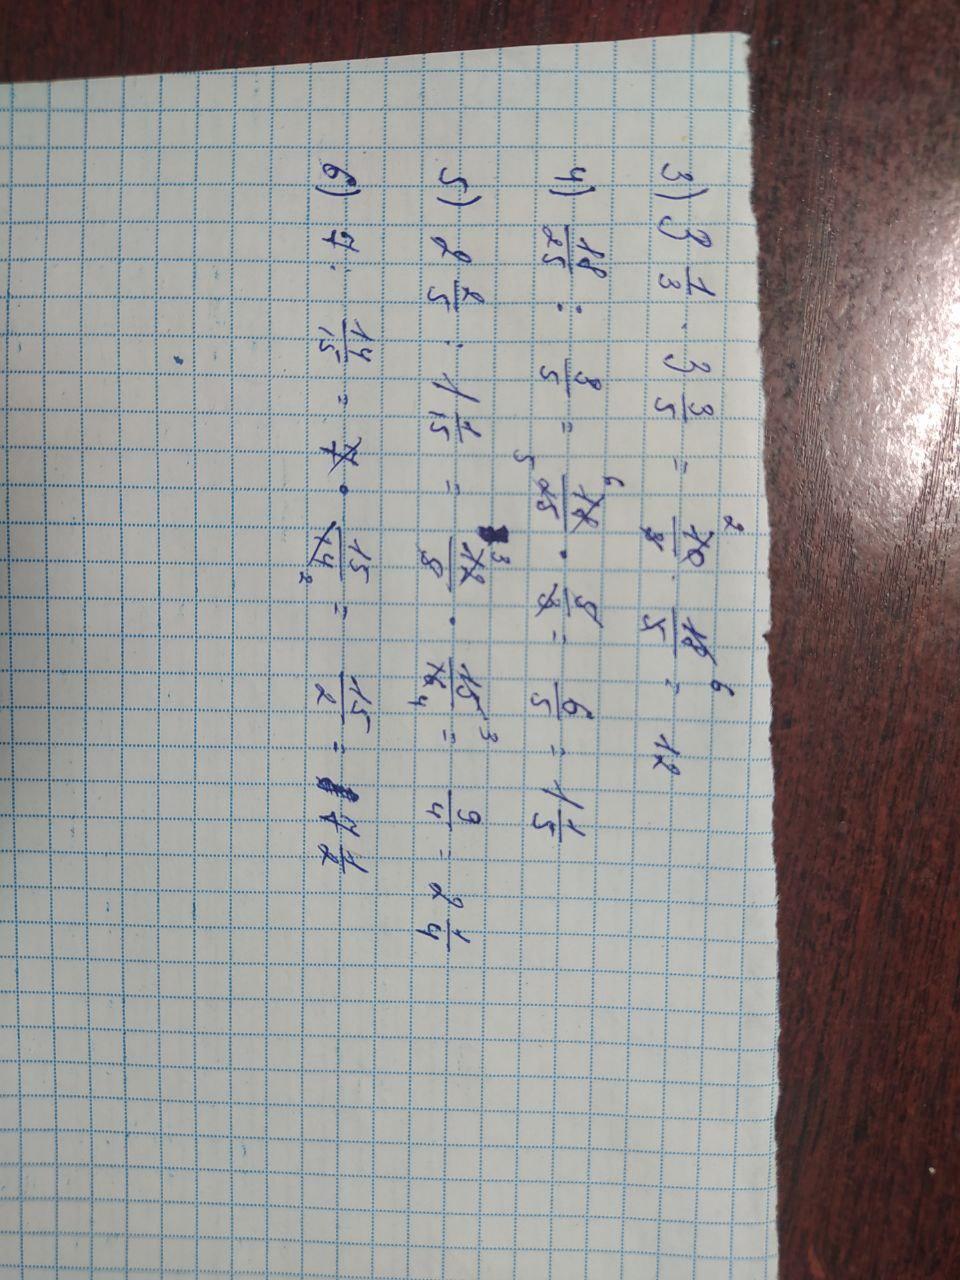 3) 3 1/3 · 3 3/5 = 10/3 · 18/5 = 12 2 6
4) 18/25 : 3/5 = 18/25 · 5/3 = 6/5 = 1 1/5 6 5
5) 2 2/5 : 1 1/15 = 12/5 · 15/16 = 9/4 = 2 1/4 3 3 4
6) 7 : 14/15 = 7 · 15/14 = 15/2 = 7 1/2 2